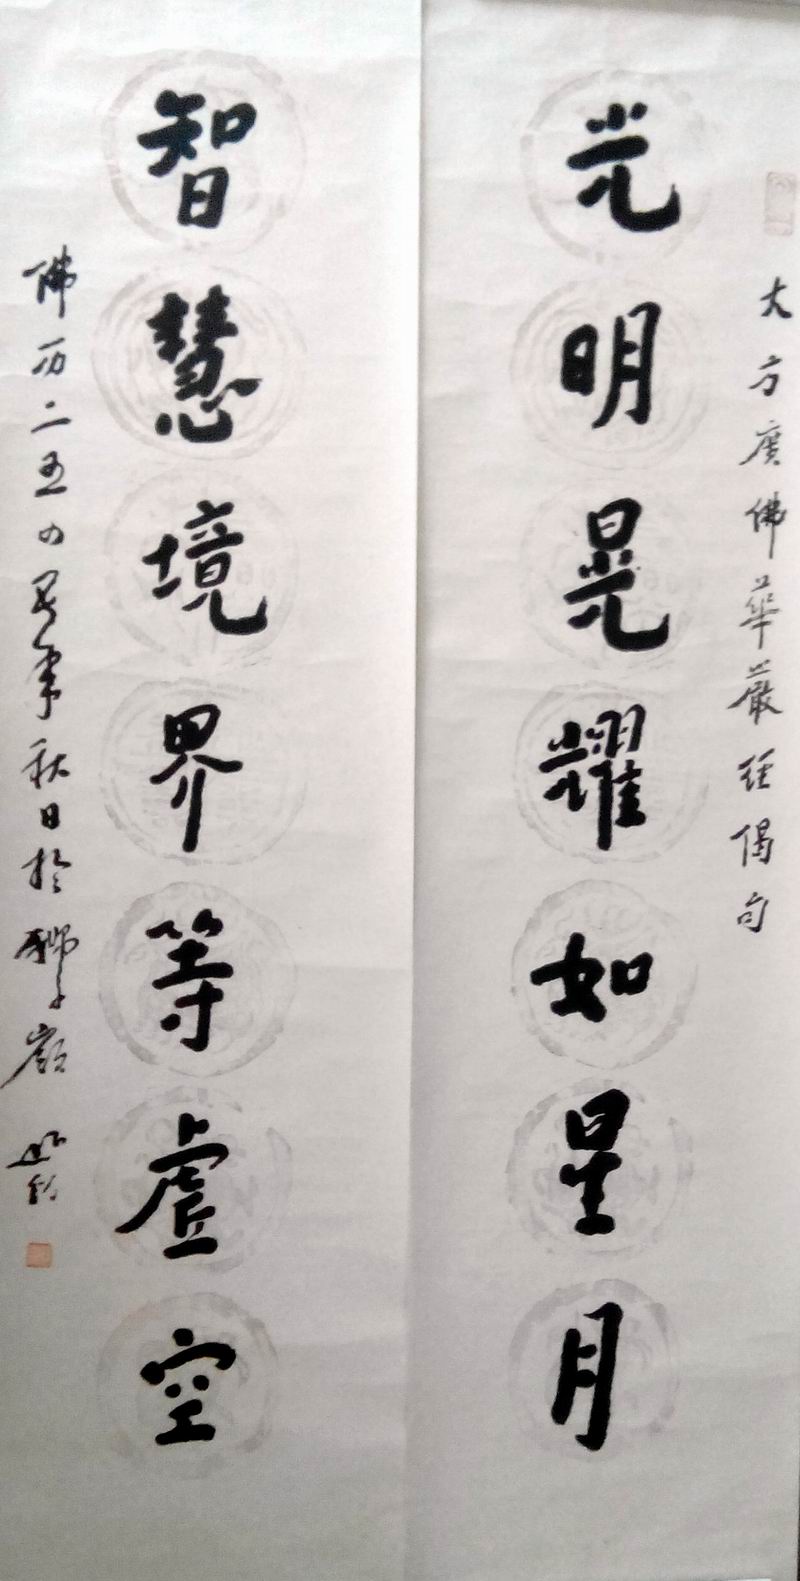 大方廣佛華嚴经偈句
光明晃耀如星月
智慧境界等虛空
佛历二五四
秋日於獅子